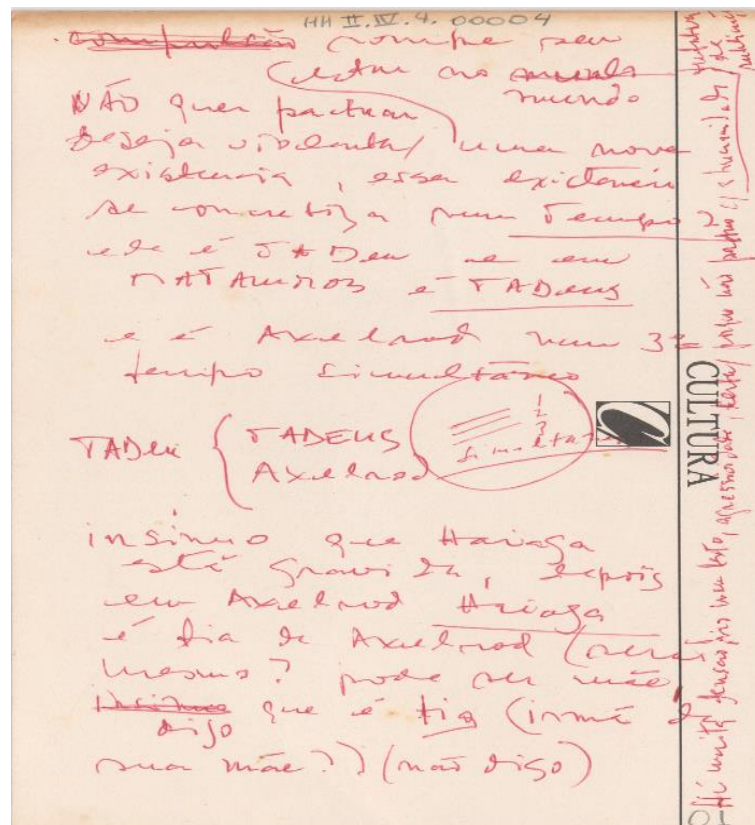 HH II.IV.4.00004
cumpre seu
estar no
mundo
NÃO quer pactuar
deseja violenta/ uma nova
existencia, essa existencia
se concretiza num Tempo 2
ele é TADeu e em
MATAMOROS é TADeus
e é Axelrod num 3º
tempo simultâneo
TADeu { TADEUS
Axelrod
1
2
3
simultâneo
CULTURA
insinuo que Haiága
está gravida, depois
em Axelrod Haiága
é tia de Axelrod (será
mesmo? pode ser mãe,
digo que é tia (irmã de
sua mãe??) (não digo)
Há muita tensão no texto, agressividade, porque não